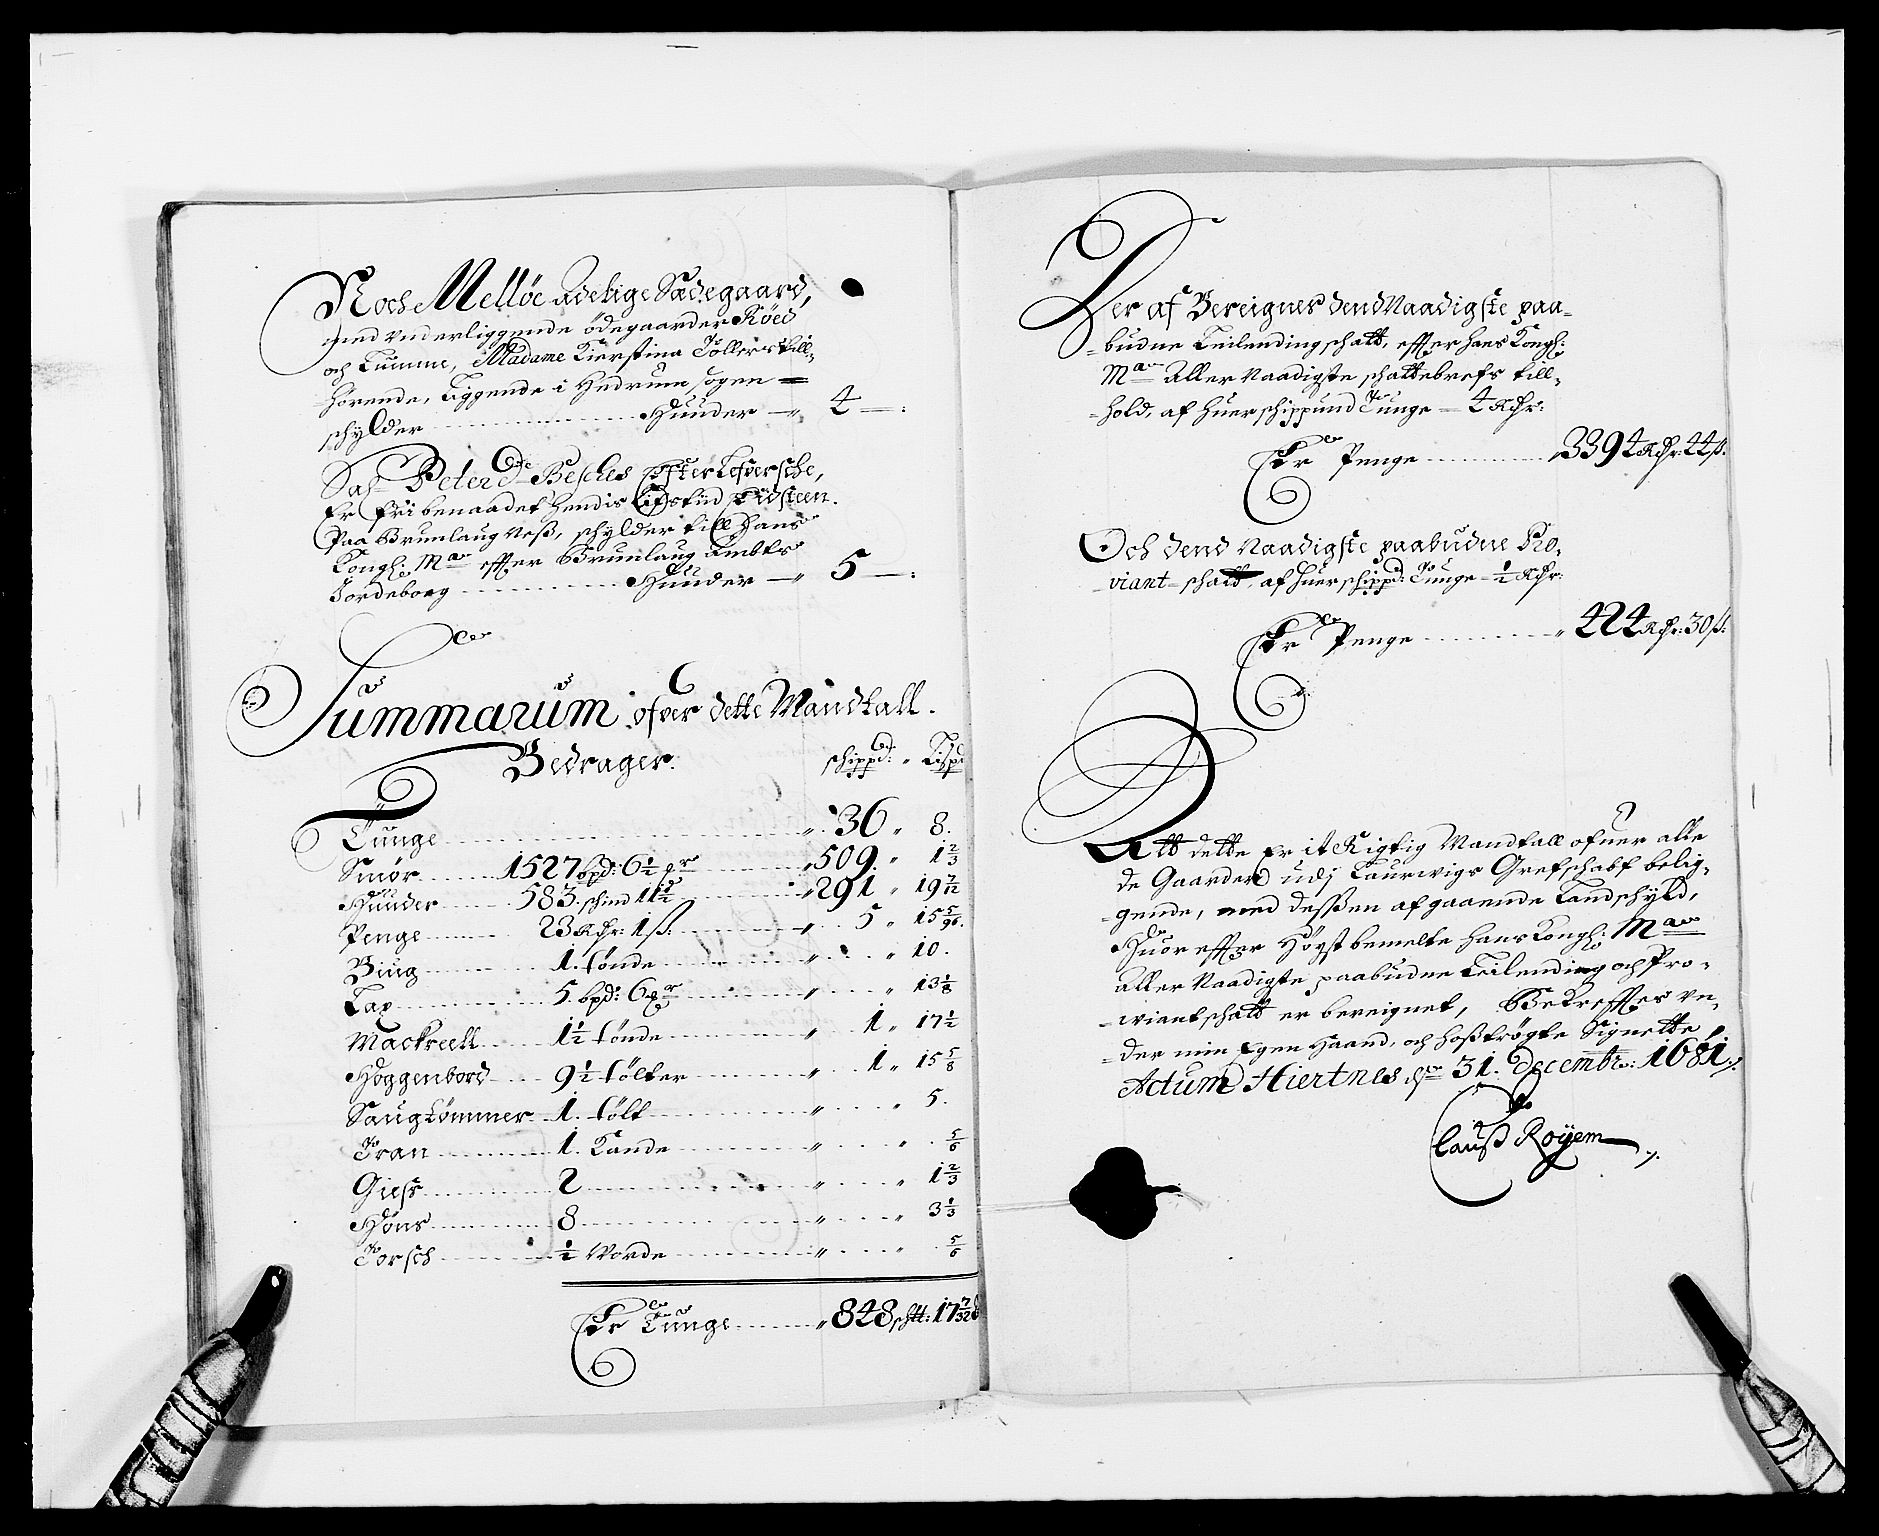 Noch Melløe adelige Sædegaard,
med underliggende ödegaarder Röed
och Tumme, Madame Kierstina Tollers till¬
hörende, Liggende i Hedrum sogen
schylder Huuder 4
Sal Peter de Besches Efterlefversche,
Er fri benaadet hendis Lifstid Tidsteen
Paa Brunlaugness, schylder till Hans
Kongl: Ma effter Brunlaug Ambts
Jordebog Huuder 5
Summarum ofver dette Mandtall.
Bedrager. schippd: Lispd
Tunge 36 8.
Smör 1527 bpd: 6 1/2 mr 509. 1 2/3
Huuder 583. schind 1 1/2 291 19 7/12
Penge 23 Rdr: 1 ß: 5 15 5/96.
Biug 1. tönde 10.
Lax 5. bpd: 6 mr 13 1/8
Mackreell 1 1/2 tönde 1 17 1/2
Hoggenbord 9 1/2 tölter 1 15 5/8
Saugtömmer 1. tölt 5.
Tran 1. Kande 5/6
Giess 2 1 2/3
Höns 8 3 1/3
Torsch 1/2 Vorde 5/6
Er Tunge 848 schtt: 17 7/32
Der af Bereignes dend Naadigste paa¬
budne Leilending schatt, effter hans Kongl:
Ma Aller Naadigste schattebrefs till¬
hold, af huer schippund Tunge 4 Rdr:
Er Penge 3394 Rdr: 44 ß:
Och dend Naadigste paabudne Pro¬
viant schatt, af huer schippd: Tunge 1/2 Rdr:
Er Penge 424 Rdr: 30 ß:
Att dette Er it Rigtig Mandtall ofuer alle
de Gaarder udj Laurwigs Grefschabf belig¬
gende, med dessen afgaaende Landschyld,
Huor effter Höyst bemelte hans Kongl: Ma
Aller Naadigste paabudne Leilending och Pro¬
wiantschatt er bereignet, Bekreffter un¬
der min Egen Haand, och hoströgte Signette
Actum Hiertnes den 31. Decembr: 1681.
Clauß Röyem